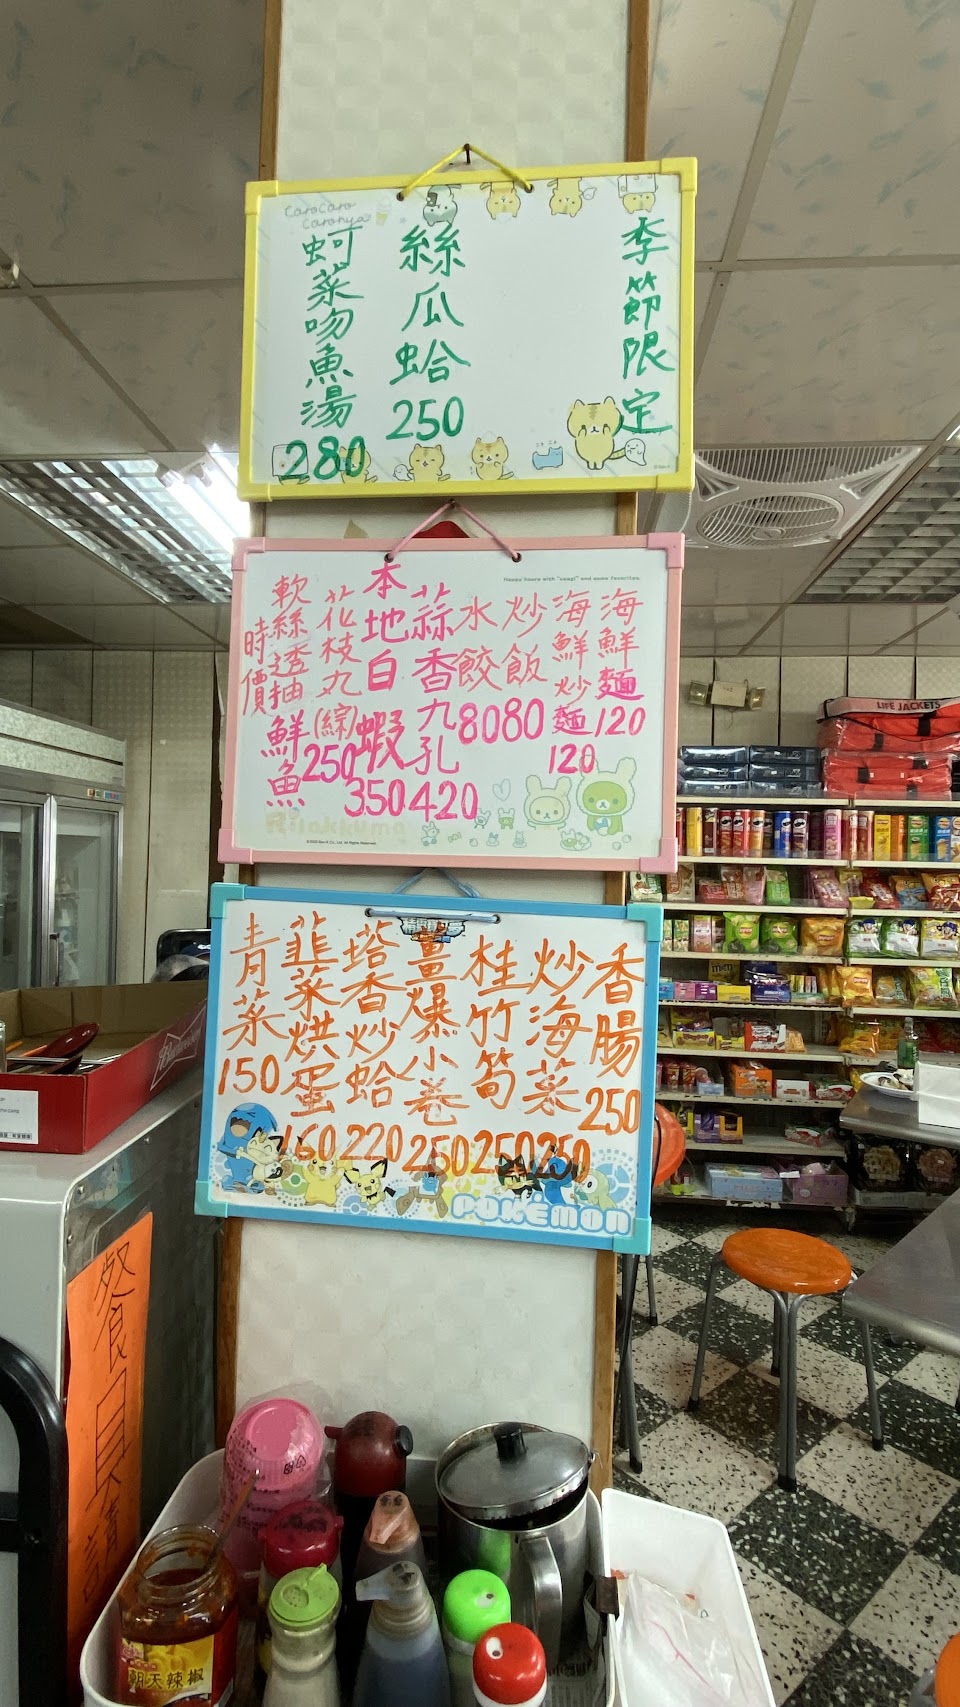 CaroCaro
Caronya
季節限定
絲瓜蛤 250
蚵菜吻魚湯 280
Happy hours with "usagi" and some favorites.
海鮮麵 120
海鮮炒麵 120
炒飯 80
水餃 80
蒜香九孔 420
本地白蝦 350
花枝丸(綜) 250
軟絲透抽鮮魚
時價
Rilakkuma
香腸 250
炒海菜 250
桂竹筍 250
薑爆小卷 250
塔香炒蛤 220
韮菜烘蛋 160
青菜 150
POKÉMON
LIFE JACKETS
Budweiser
餐具
朝天辣椒